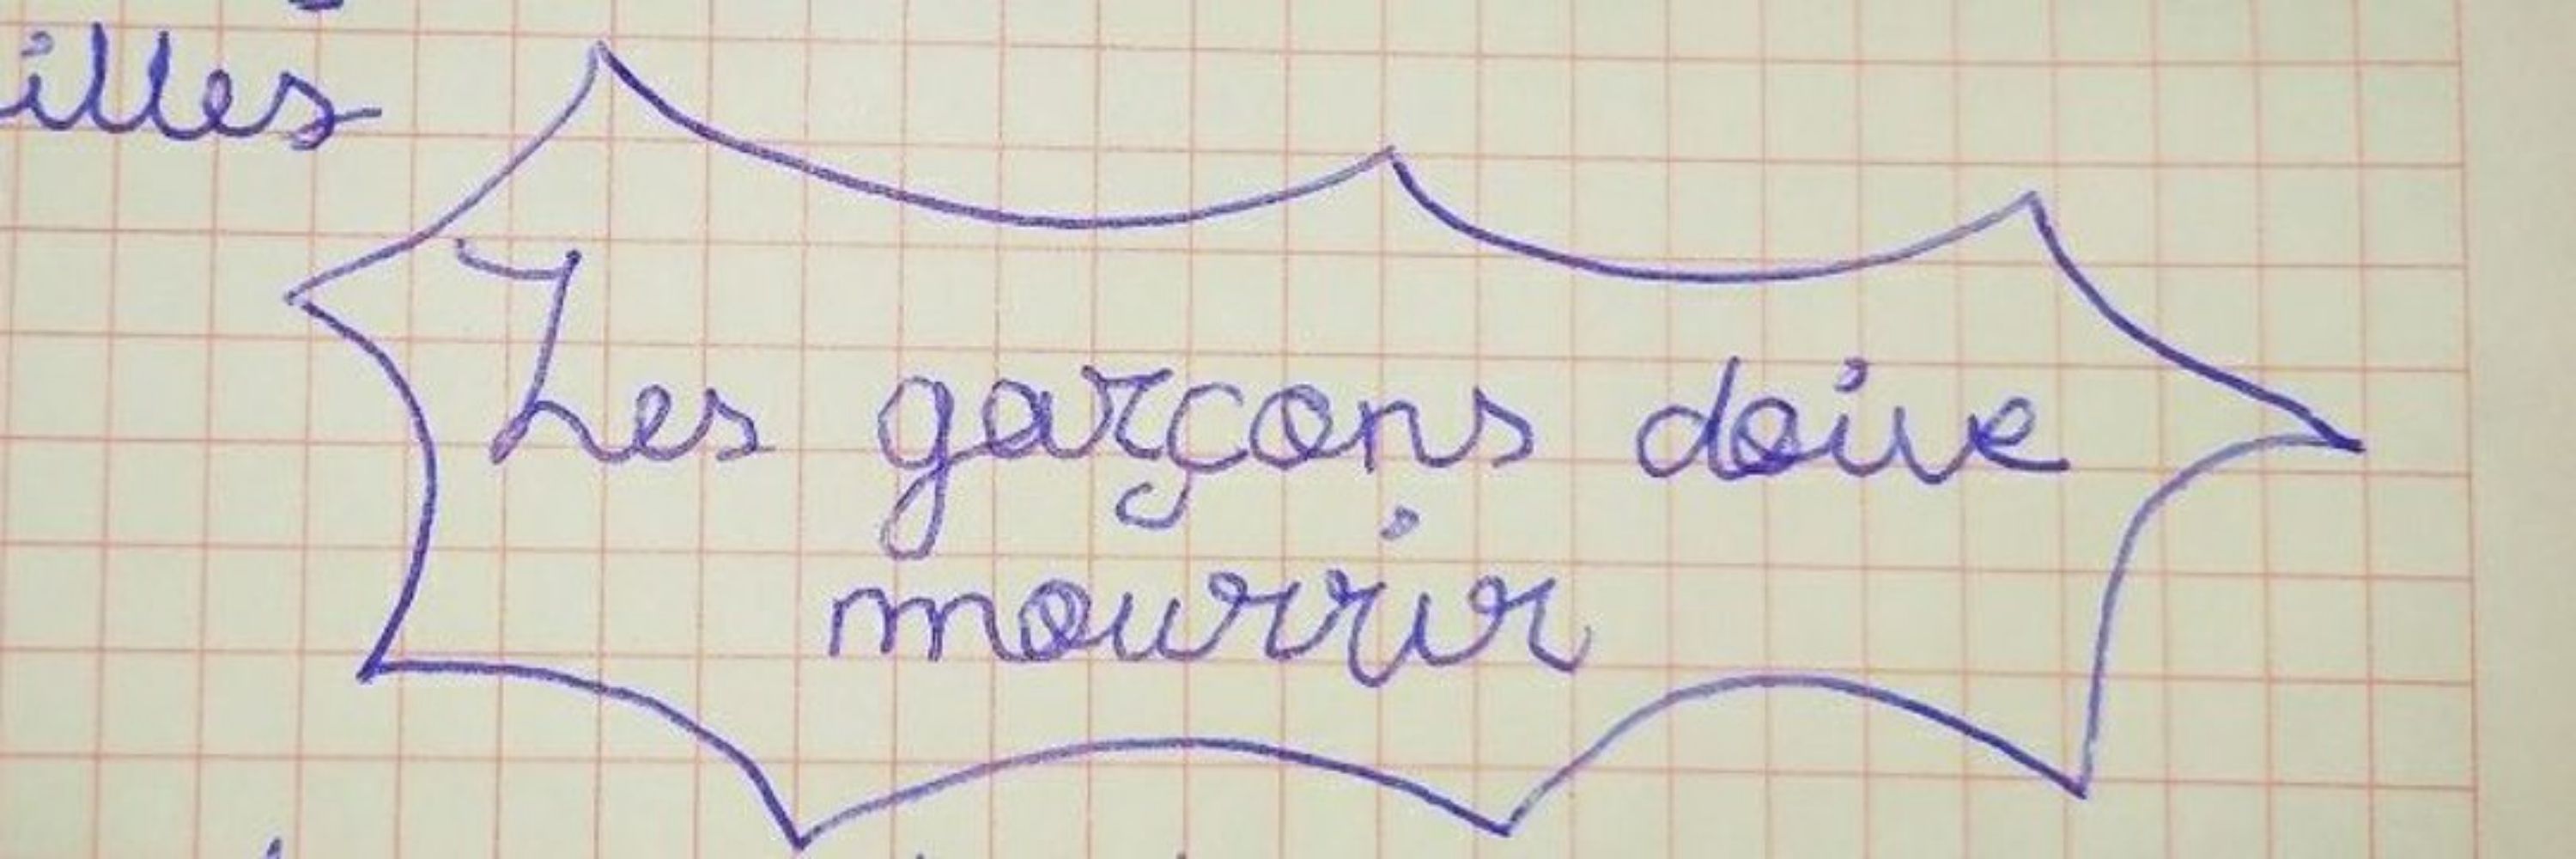 illes
Les garçons doive
mourrir